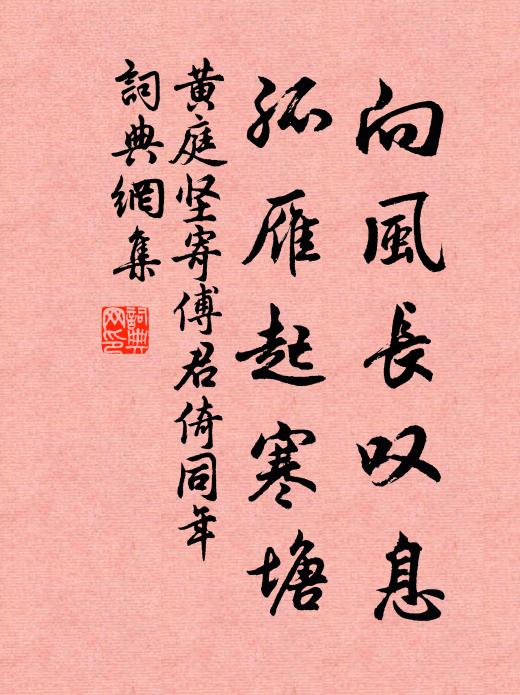 向風長叹息
孤雁起寒塘
黄庭坚寄傅君倚同年
詞典網集
詞典
网印